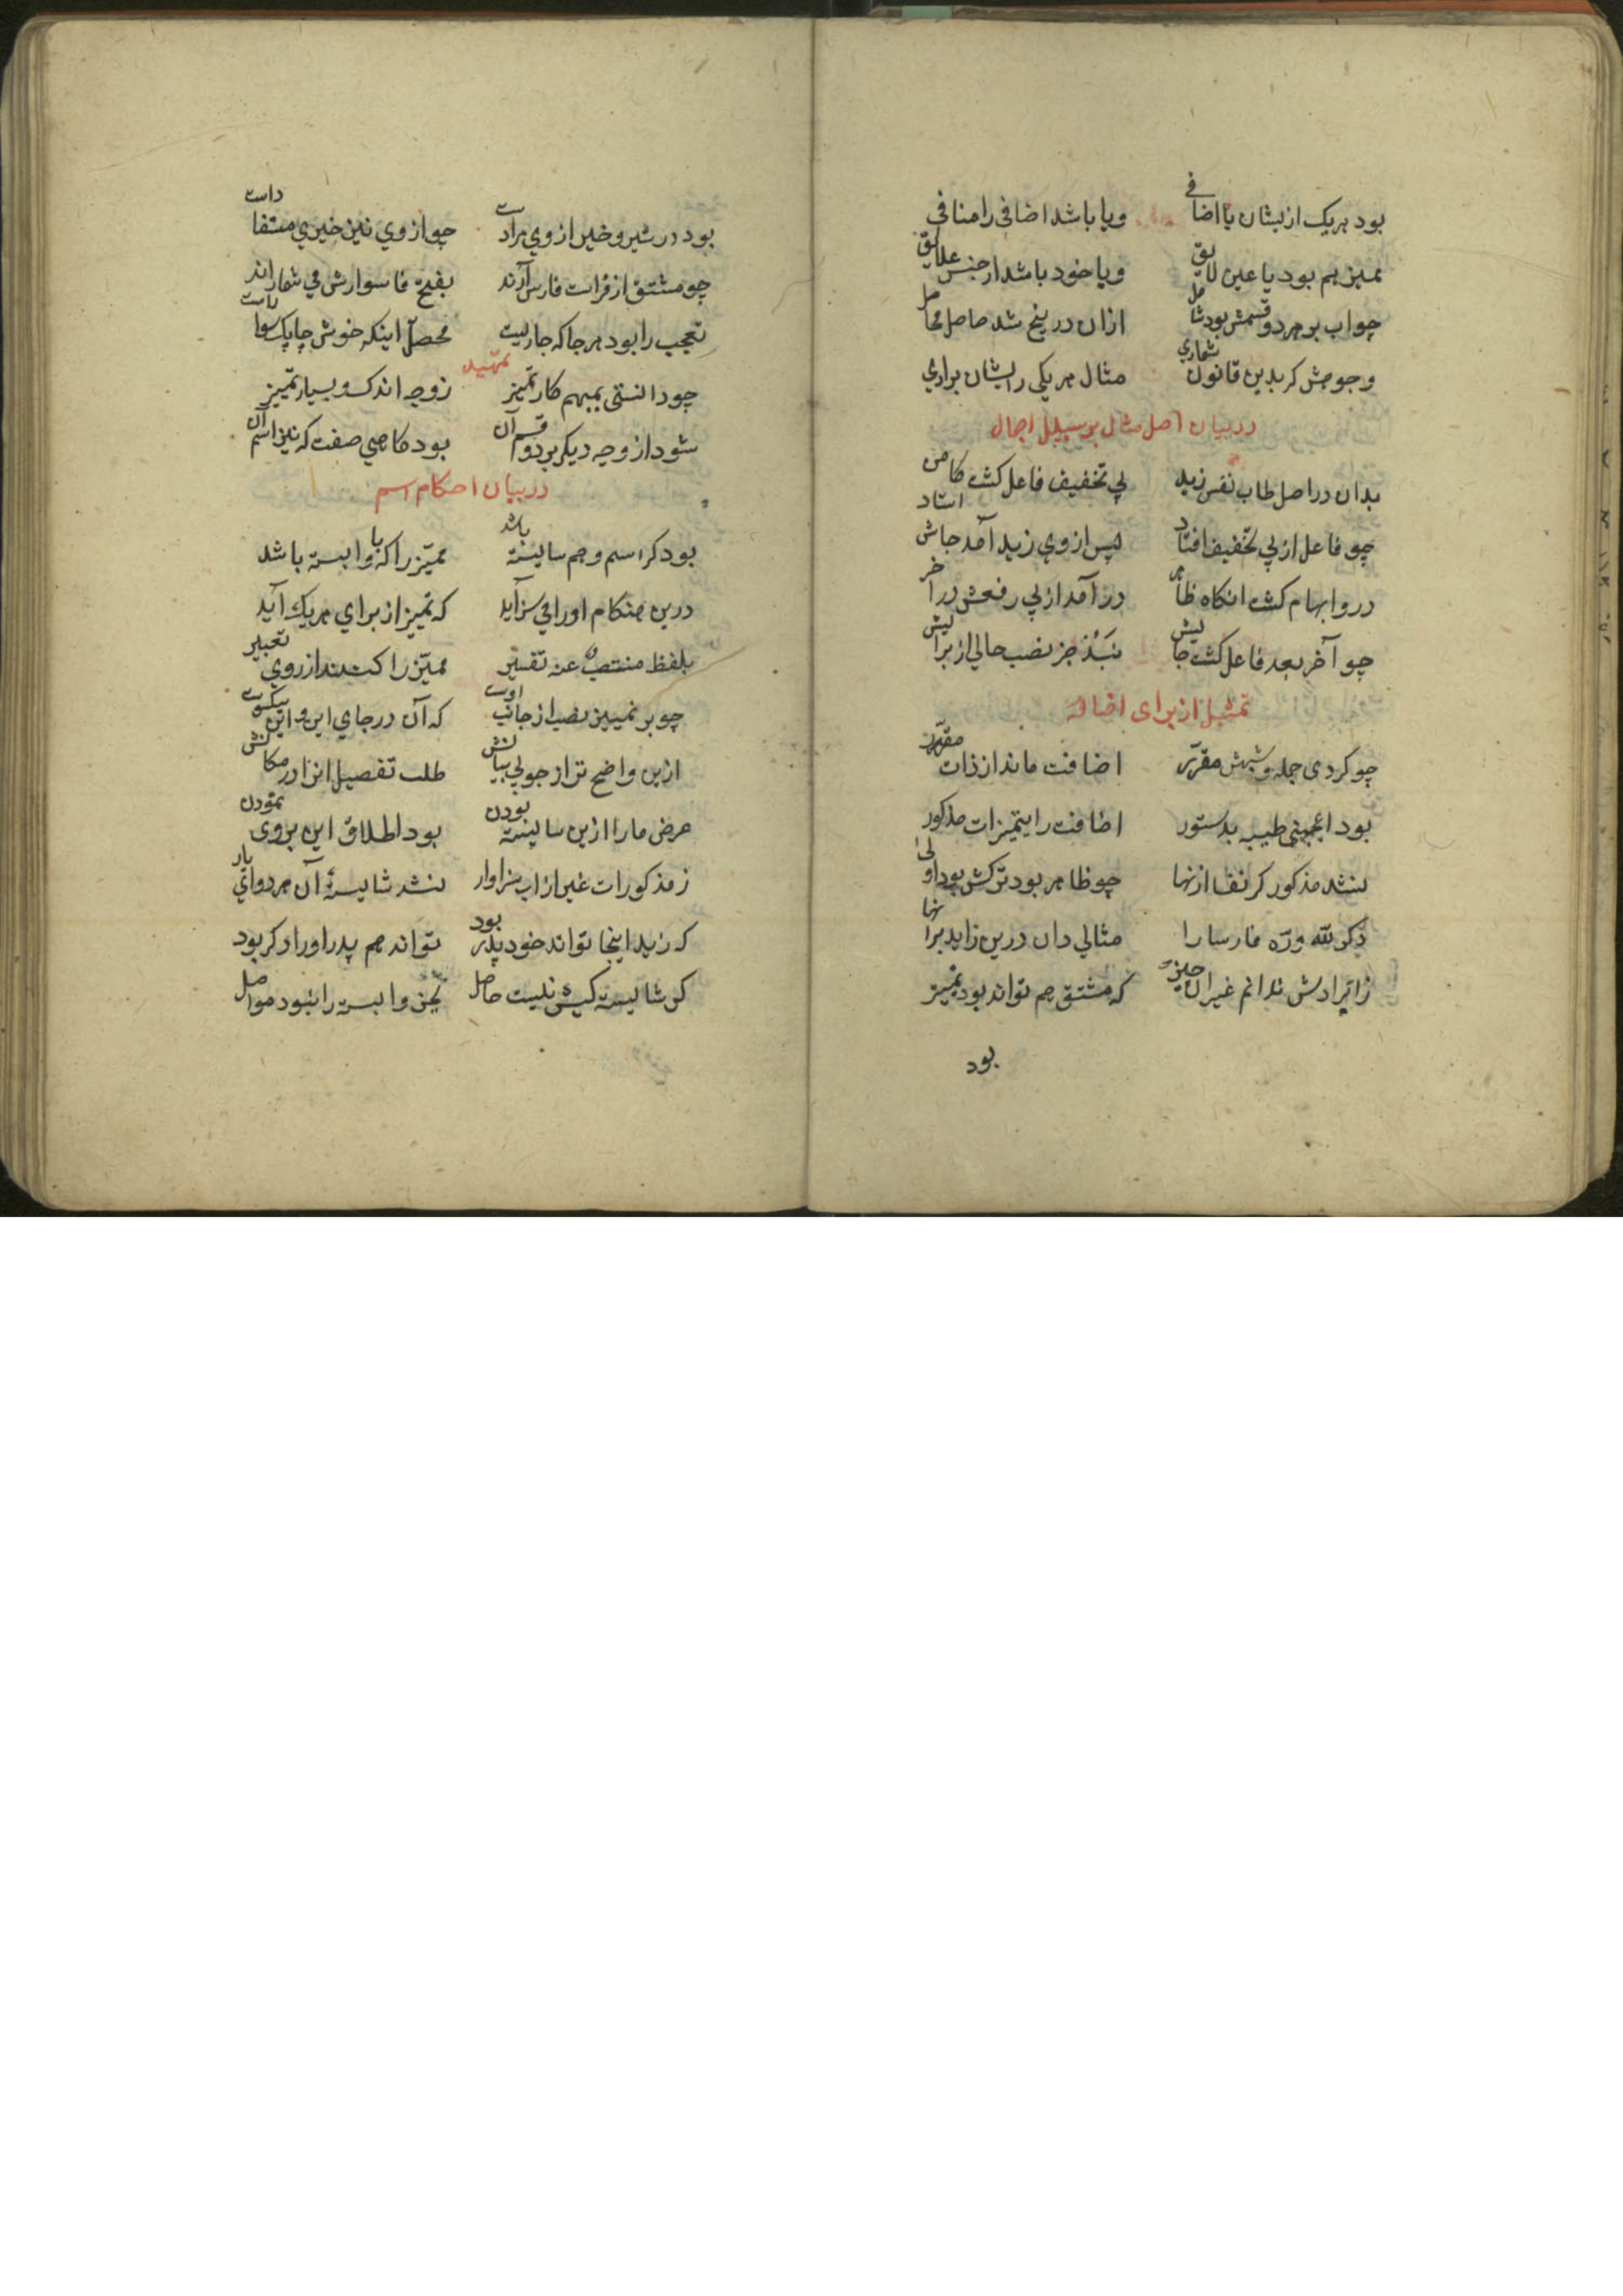 بود هریک ازیشان یا اضافی ویا باشد اضافی را منافی
ممیز هم بود یا عین لایق ویا خود باشد از جنس علایق
جواب بر هر دو قسمش بود شامل ازان در پنج شد حاصل محامل
وجوهش کر بدین قانون شماری مثال هر یکی رایشان براری
در بیان اصل مثال بر سبیل اجمال
بدان در اصل طاب نفس زید پی تخفیف فاعل کشت
چو فاعل از پی تخفیف افتاد پس از وی زید آمد جاش استاد
درو ابهام کشت انکاه ظاهر در آمد از پی رفعش در آخر
چو آخر بعد فاعل کشت جایش نبد جز نصب حالی از برایش
تمثیل از برای اضافه
چو کردی جمله و شبهش مقرر اضافت ماند از ذات مقرر
بود اعجبنی طیبه بدستور اضافت را بتمیزات مذکور
نشد مذکور کر نفسا ازنها چو ظاهر بود ترکش بود اولی
دکر لله دره فارسا را مثالی دان درین زاید برانها
زایرادش ندانم غیر این چیز که مشتق هم تواند بود تمییز
بود
بود در شیر و خیر از وی مراد ست چو از وی نیز خیری مستفاد است
چو مشتق از فراست فارس آرند بفتح فا سوارش می شمارند
تعجب را بود هر جا که جاریست محصل اینکه خوش چابک سواراست
تمهید
چو دانستی بمبهم کار تمییز ز وجه اندک و بسیار تمییز
شود از وجه دیکر بر دو قسم آن بود کاهی صفت که نیز اسم آن
در بیان احکام اسم
بود کر اسم و هم شایسته باشد ممیز را که با وابسته باشد
درین هنکام او را می سزاید که تمییز از برای هریک آید
بلفظ منتصب عنه تفسیر ممیز را کنند از روی تعبیر
چو بر تمییز نصب از جانب اوست که آن در جای این و این نیکوست
ازین واضح تر از جویی بیانش طلب تفصیل انرا در مکانش
غرض ما را ازین شایسته بودن بود اطلاق این بر وی نمودن
ز مذکورات غیر از اب سزاوار نشد شایستهٔ آن هر دو ای یار
که زید اینجا تواند خود پدر بود تواند هم پدر او را دکر بود
کر شایسته کیش نیست حاصل بجز وابسته را نبود مواصل